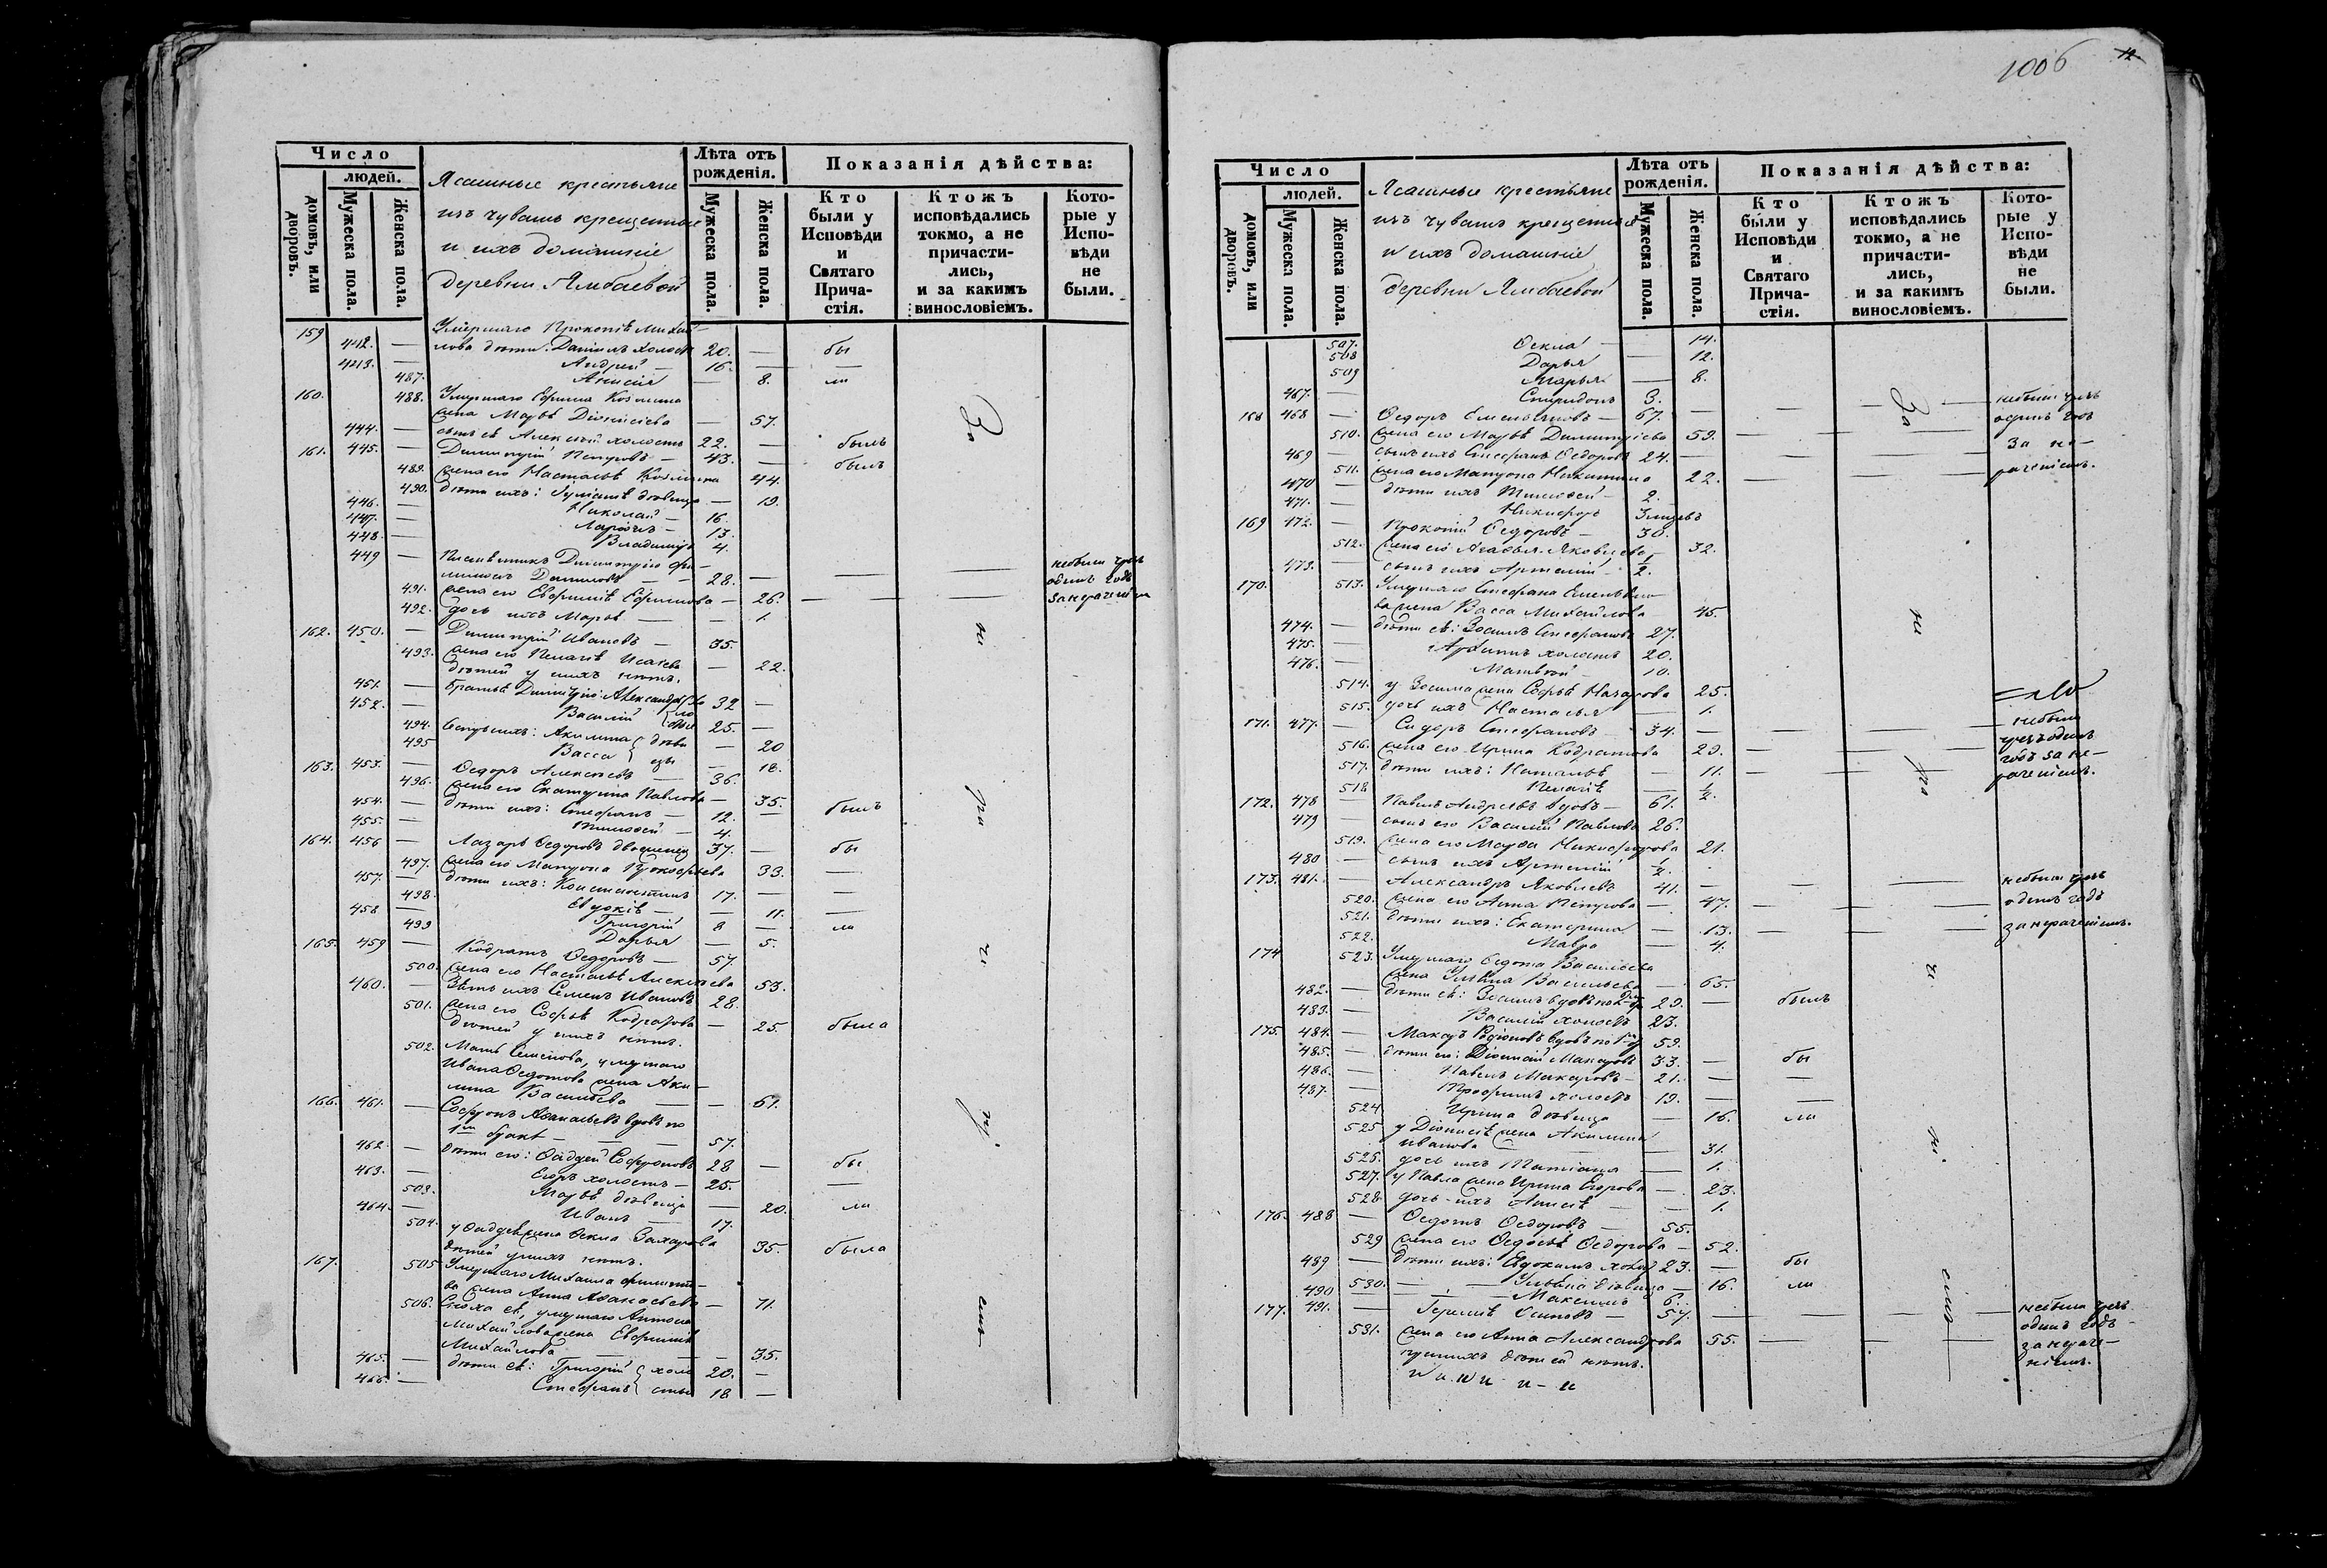 Число
людей.
домовъ, или дворовъ.
Мужеска пола.
Женска пола.
Ясашные крестьяне
изъ чувашъ крещенные
и ихъ домашніе
деревни Ямбаевой
Лѣта отъ рожденія.
Мужеска пола.
Женска пола.
Показанія дѣйства:
Кто были у Исповѣди и Святаго Прича- стія.
Ктожъ исповѣдались токмо, а не причасти- лись, и за какимъ винословіемъ.
Кото- рые у Испо- вѣди не были.
159 Умершаго Прокопія Михай-
442. — лова дѣти: Даніилъ холостъ 20. — бы
443. — Андрей — 16. — —
487. Анисія — 8. ли
160. 488. Умершаго Ефрема Козмина
жена Марья Діонисіева — 57.
444. — сынъ ея Алексѣй холостъ 22. — былъ
161. 445. — Димитрій Петровъ — 43. — былъ
489. жена его Настасья Козмина 44.
490. дѣти ихъ: Іуліанія дѣвица — 19.
446. — Николай — 16.
447. — Ларіонъ — 13.
448. — Владиміръ 4.
449 — Димитрію
Даниловъ — — 28. — — — небыли чрезъ
491. жена его Евфимія Ефимова — 26. — — одинъ годъ
492. дочь ихъ Марья — — 1. за нераченіемъ
162. 450. — Димитрій Ивановъ — 35.
493. жена его Пелагія Исаева — 22.
дѣтей у нихъ нѣтъ.
451. — братья Димитрія: Александръ 32 —
452. — Василій 25. —
494. Сестры ихъ: Акилина дѣви — 20
495 Васса цы — 18.
163. 453. — Ѳедоръ Алексѣевъ — 36.
496. жена его Екатерина Павлова — 35.
454. — дѣти ихъ: Стефанъ — 12. — былъ
455. — Тимоѳей — 4.
164. 456 — Лазарь Ѳедоровъ двоеженецъ 37. — бы
497. жена его Матрона Прокофьева 33. —
457. — дѣти ихъ: Константинъ 17. — —
498. Евдокія — — 11. —
458 — Григорій 8 — ли
499 Дарья — 5.
165. 459 — Кодратъ Ѳедоровъ — 57.
500. жена его Настасья Алексѣева 53.
460. — Зять ихъ Семенъ Ивановъ 28.
501. жена его Софья Кодратова — 25. была
дѣтей у нихъ нѣтъ.
502. Мать Семенова, умершаго
Ивана Ѳедотова жена Аки-
лина Васильева — — 61.
166. 461. — Софронъ Аѳанасьевъ вдовъ по
1мъ бракѣ — — — 57.
462 — дѣти его: Ѳаддей Софроновъ 28 — бы
463. — Егоръ холостъ — 25. —
503. Марья дѣвица — 20. ли
464. — Иванъ — 17.
504. у Ѳаддея жена Ѳекла Захарова 35. была
дѣтей у нихъ нѣтъ.
167. 505 Умершаго Михаила Филипо-
ва жена Анна Аѳанасьева — 71.
506. Сноха ея, умершаго Антона
Михайлова жена Евфимія
Михайлова — — — 35.
465. — дѣти ея: Григорій холо 20. —
466. — Стефанъ сты 18 —
За не ра че ні емъ
1006
12
Число
людей.
домовъ, или дворовъ.
Мужеска пола.
Женска пола.
Ясашные крестьяне
изъ чувашъ крещенные
и ихъ домашніе
деревни Ямбаевой
Лѣта отъ рожденія.
Мужеска пола.
Женска пола.
Показанія дѣйства:
Кто были у Исповѣди и Святаго Прича- стія.
Ктожъ исповѣдались токмо, а не причасти- лись, и за какимъ винословіемъ.
Кото- рые у Испо- вѣди не были.
507. Ѳекла — 14.
508 Дарья — 12.
509 Марья — 8.
467. — Спиридонъ 3. — — — небыли чрезъ
168 468 — Ѳедоръ Емельяновъ — 67. — — — одинъ годъ
510. жена его Марья Димитріева 59. — — За не-
469 — сынъ ихъ Стефанъ Ѳедоровъ 24. — — — раченіемъ.
511. жена его Матрона Никитина 22. — —
470 — дѣти ихъ Тимоѳей — 2.
471. — Никифоръ 3 мцвъ
169 472. — Прокопій Ѳедоровъ — 30.
512. жена его Агаѳья Яковлева 32.
473. — сынъ ихъ Артемій — ½.
170. 513. Умершаго Стефана Емельяно-
ва жена Васса Михайлова 45.
474. — дѣти ея: Зосима Стефановъ 27.
475. — Архипъ холостъ 20.
476. — Матвѣй — 10.
514. у Зосима жена Софья Назарова 25.
515. дочь ихъ Настасья — 1.
171. 477. — Сидоръ Стефановъ — 34. — — — небыли
516. жена его Ирина Кодратова 29. — — чрезъ одинъ
517. дѣти ихъ: Наталья — 11. — — годъ за не-
518 Пелагія — ½. раченіемъ.
172. 478 — Павелъ Андреевъ вдовъ — 61.
479 — сынъ его Василій Павловъ 26.
519. жена его Марѳа Никифорова 21.
480 — сынъ ихъ Артемій ½.
173. 481. — Александръ Яковлевъ 41. — — — небыли чрезъ
520. жена его Анна Петрова — 47. — — одинъ годъ
521. дѣти ихъ: Екатерина — 13. — — за нераченіемъ.
522. Мавра — 4.
174 523. Умершаго Ѳедота Васильева
жена Ульяна Васильева — 65.
482. — дѣти ея: Зосима вдовъ по 29. — былъ
483. — Василій холостъ 23.
175. 484. — Макаръ Родіоновъ вдовъ по 59.
485. — дѣти его: Діонисій Макаровъ 33. — бы
486. — Павелъ Макаровъ — 21. — —
487. — Трофимъ холостъ 19. — —
524. Ирина дѣвица — 16. ли
525 у Діонисія жена Акилина
Иванова — — 31.
526. дочь ихъ Татіана — 1.
527. у Павла жена Ирина Егорова — 23.
528 дочь ихъ Анисія — — 1.
176. 488 — Ѳедотъ Ѳедоровъ — 55.
529 жена его Ѳедосья Ѳедорова — 52.
489 — дѣти ихъ: Евдокимъ холос 23. — бы
530. — Ульяна дѣвица — 16. ли
490 — — Максимъ 6.
177. 491. — Осиповъ — 57. — — — небыли чрезъ
531. жена его Анна Александрова 55. — — одинъ годъ
у нихъ дѣтей нѣтъ. за нераче-
ніемъ.
За не ра че ні емъ